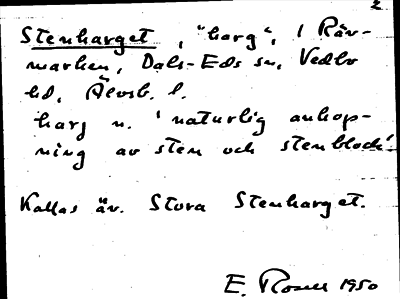 2
Stenharget, "harg", i Räv-
marken, Dals-Eds sn, Vedbo
hd, Älvsb. l.
harg n. 'naturlig anhop-
ning av sten och stenblock'.
Kallas äv. Stora Stenharget.
E. Rosell 1950